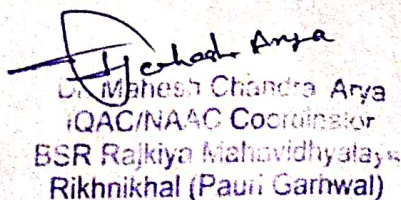 Arya
Dr. Mahesh Chandra Arya
IQAC/NAAC Coordinator
BSR Rajkiya Mahavidhyalaya
Rikhnikhal (Pauri Garhwal)